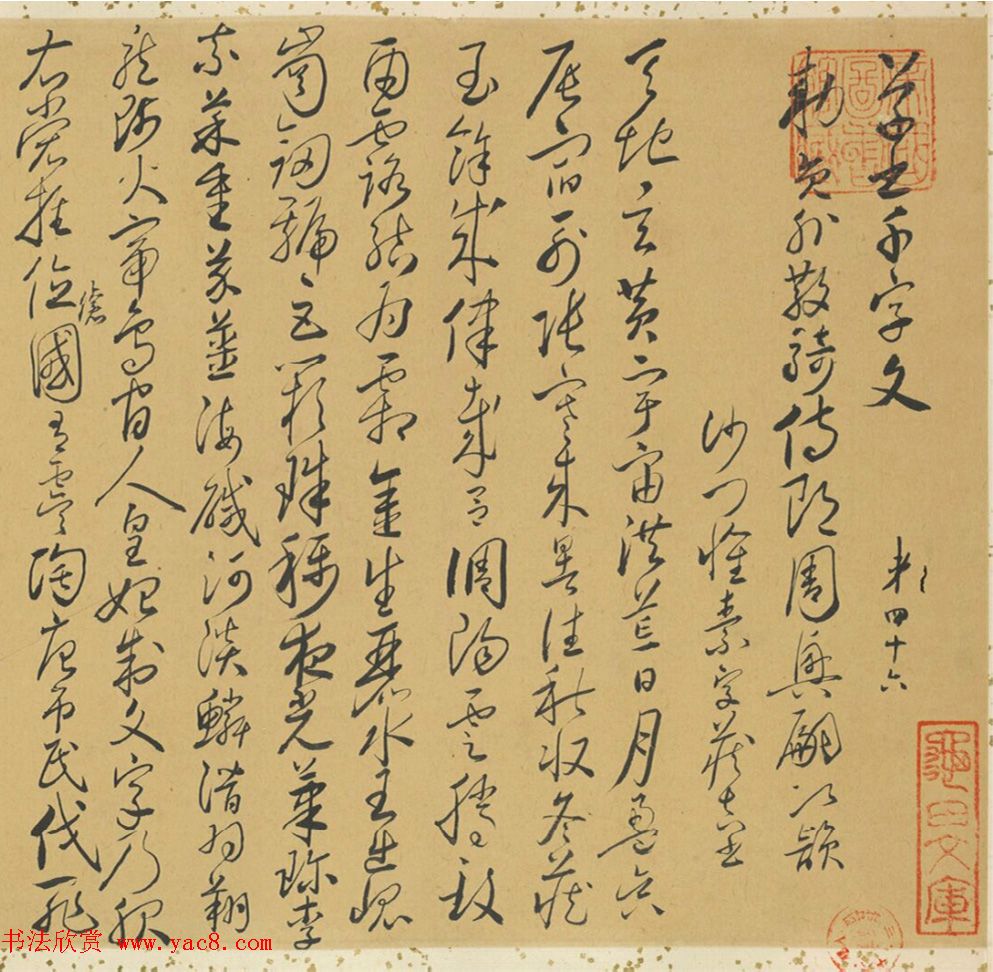 草書千字文
第四十六
勅員外散騎侍郎周興嗣次韻
沙門懷素字藏真
天地玄黄宇宙洪荒日月盈昃
辰宿列張寒來暑往秋收冬藏
閏餘成律歲吕調陽雲騰致
雨露結為霜金生麗水玉出崐
崗劒號巨闕珠稱夜光菓珍李
柰菜重芥薑海鹹河淡鱗潜羽翔
龍師火帝鳥官人皇始制文字乃服
衣裳推位讓國有虞陶唐弔民伐罪
书法欣赏 www.yac8.com